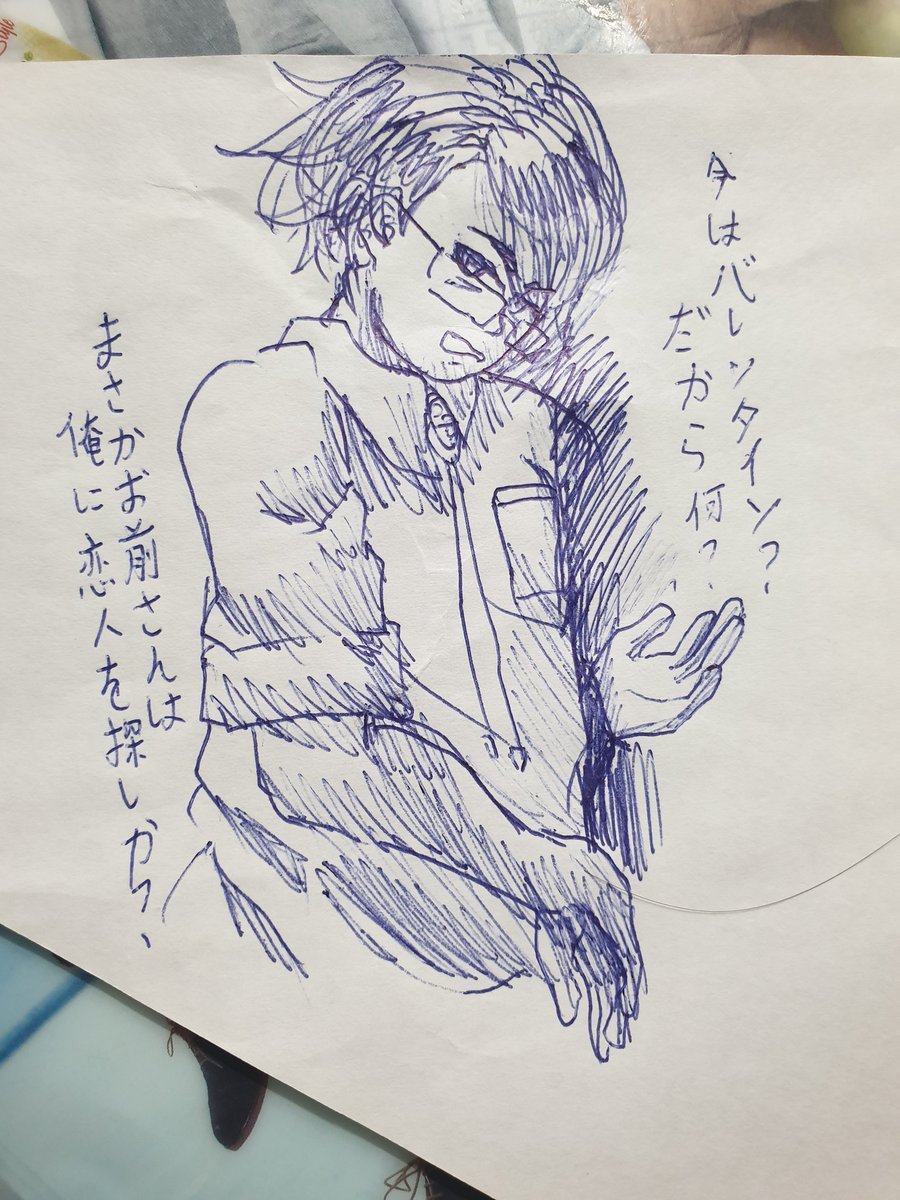 Style
今はバレンタイン?
だから何?
まさかお前さんは
俺に恋人を探しか?